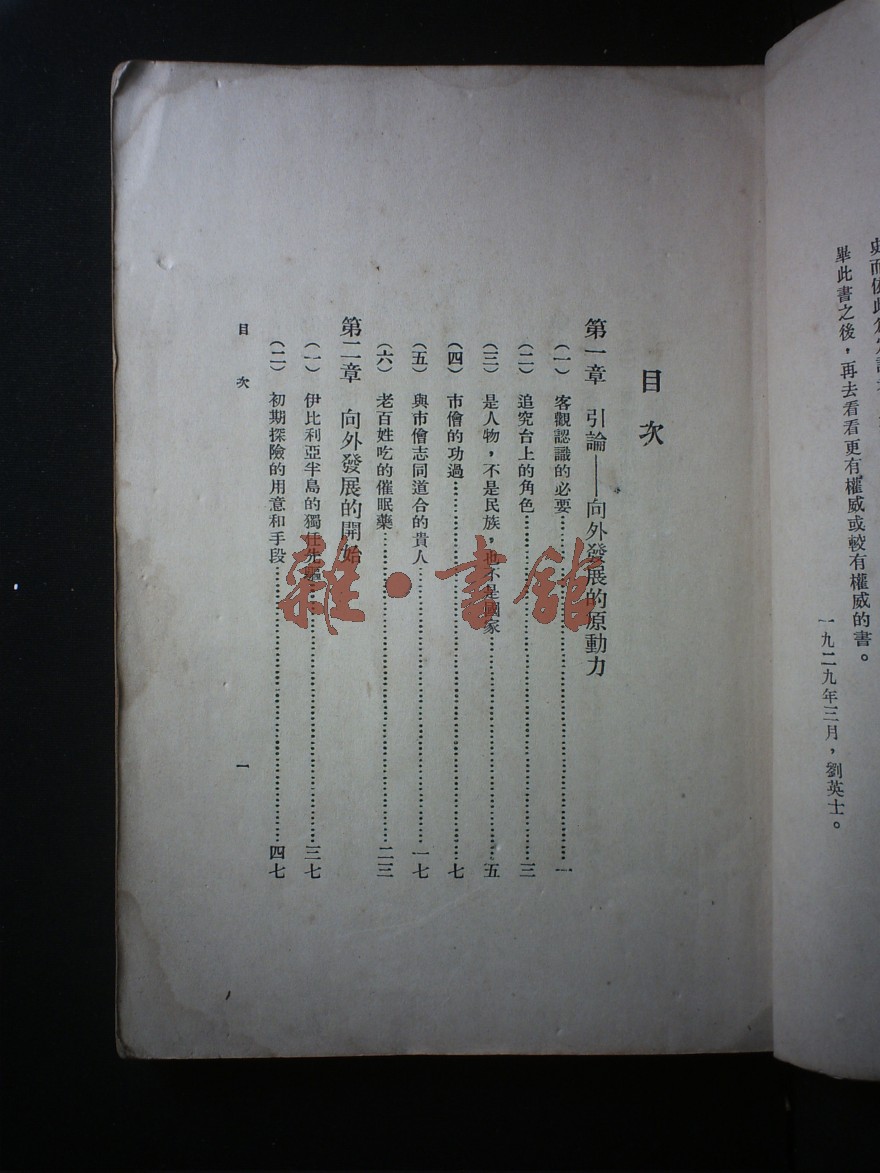 畢此書之後，再去看看更有權威或較有權威的書。
一九二九年三月，劉英士。
目次
第一章 引論——向外發展的原動力
（一） 客觀認識的必要……一
（二） 追究台上的角色……三
（三） 是人物，不是民族，也不是國家……五
（四） 市儈的功過……七
（五） 與市儈志同道合的貴人……一七
（六） 老百姓吃的催眠藥……二三
第二章 向外發展的開始
（一） 伊比利亞半島的獨任先驅……三七
（二） 初期探險的用意和手段……四七
目次 一
雜·書館